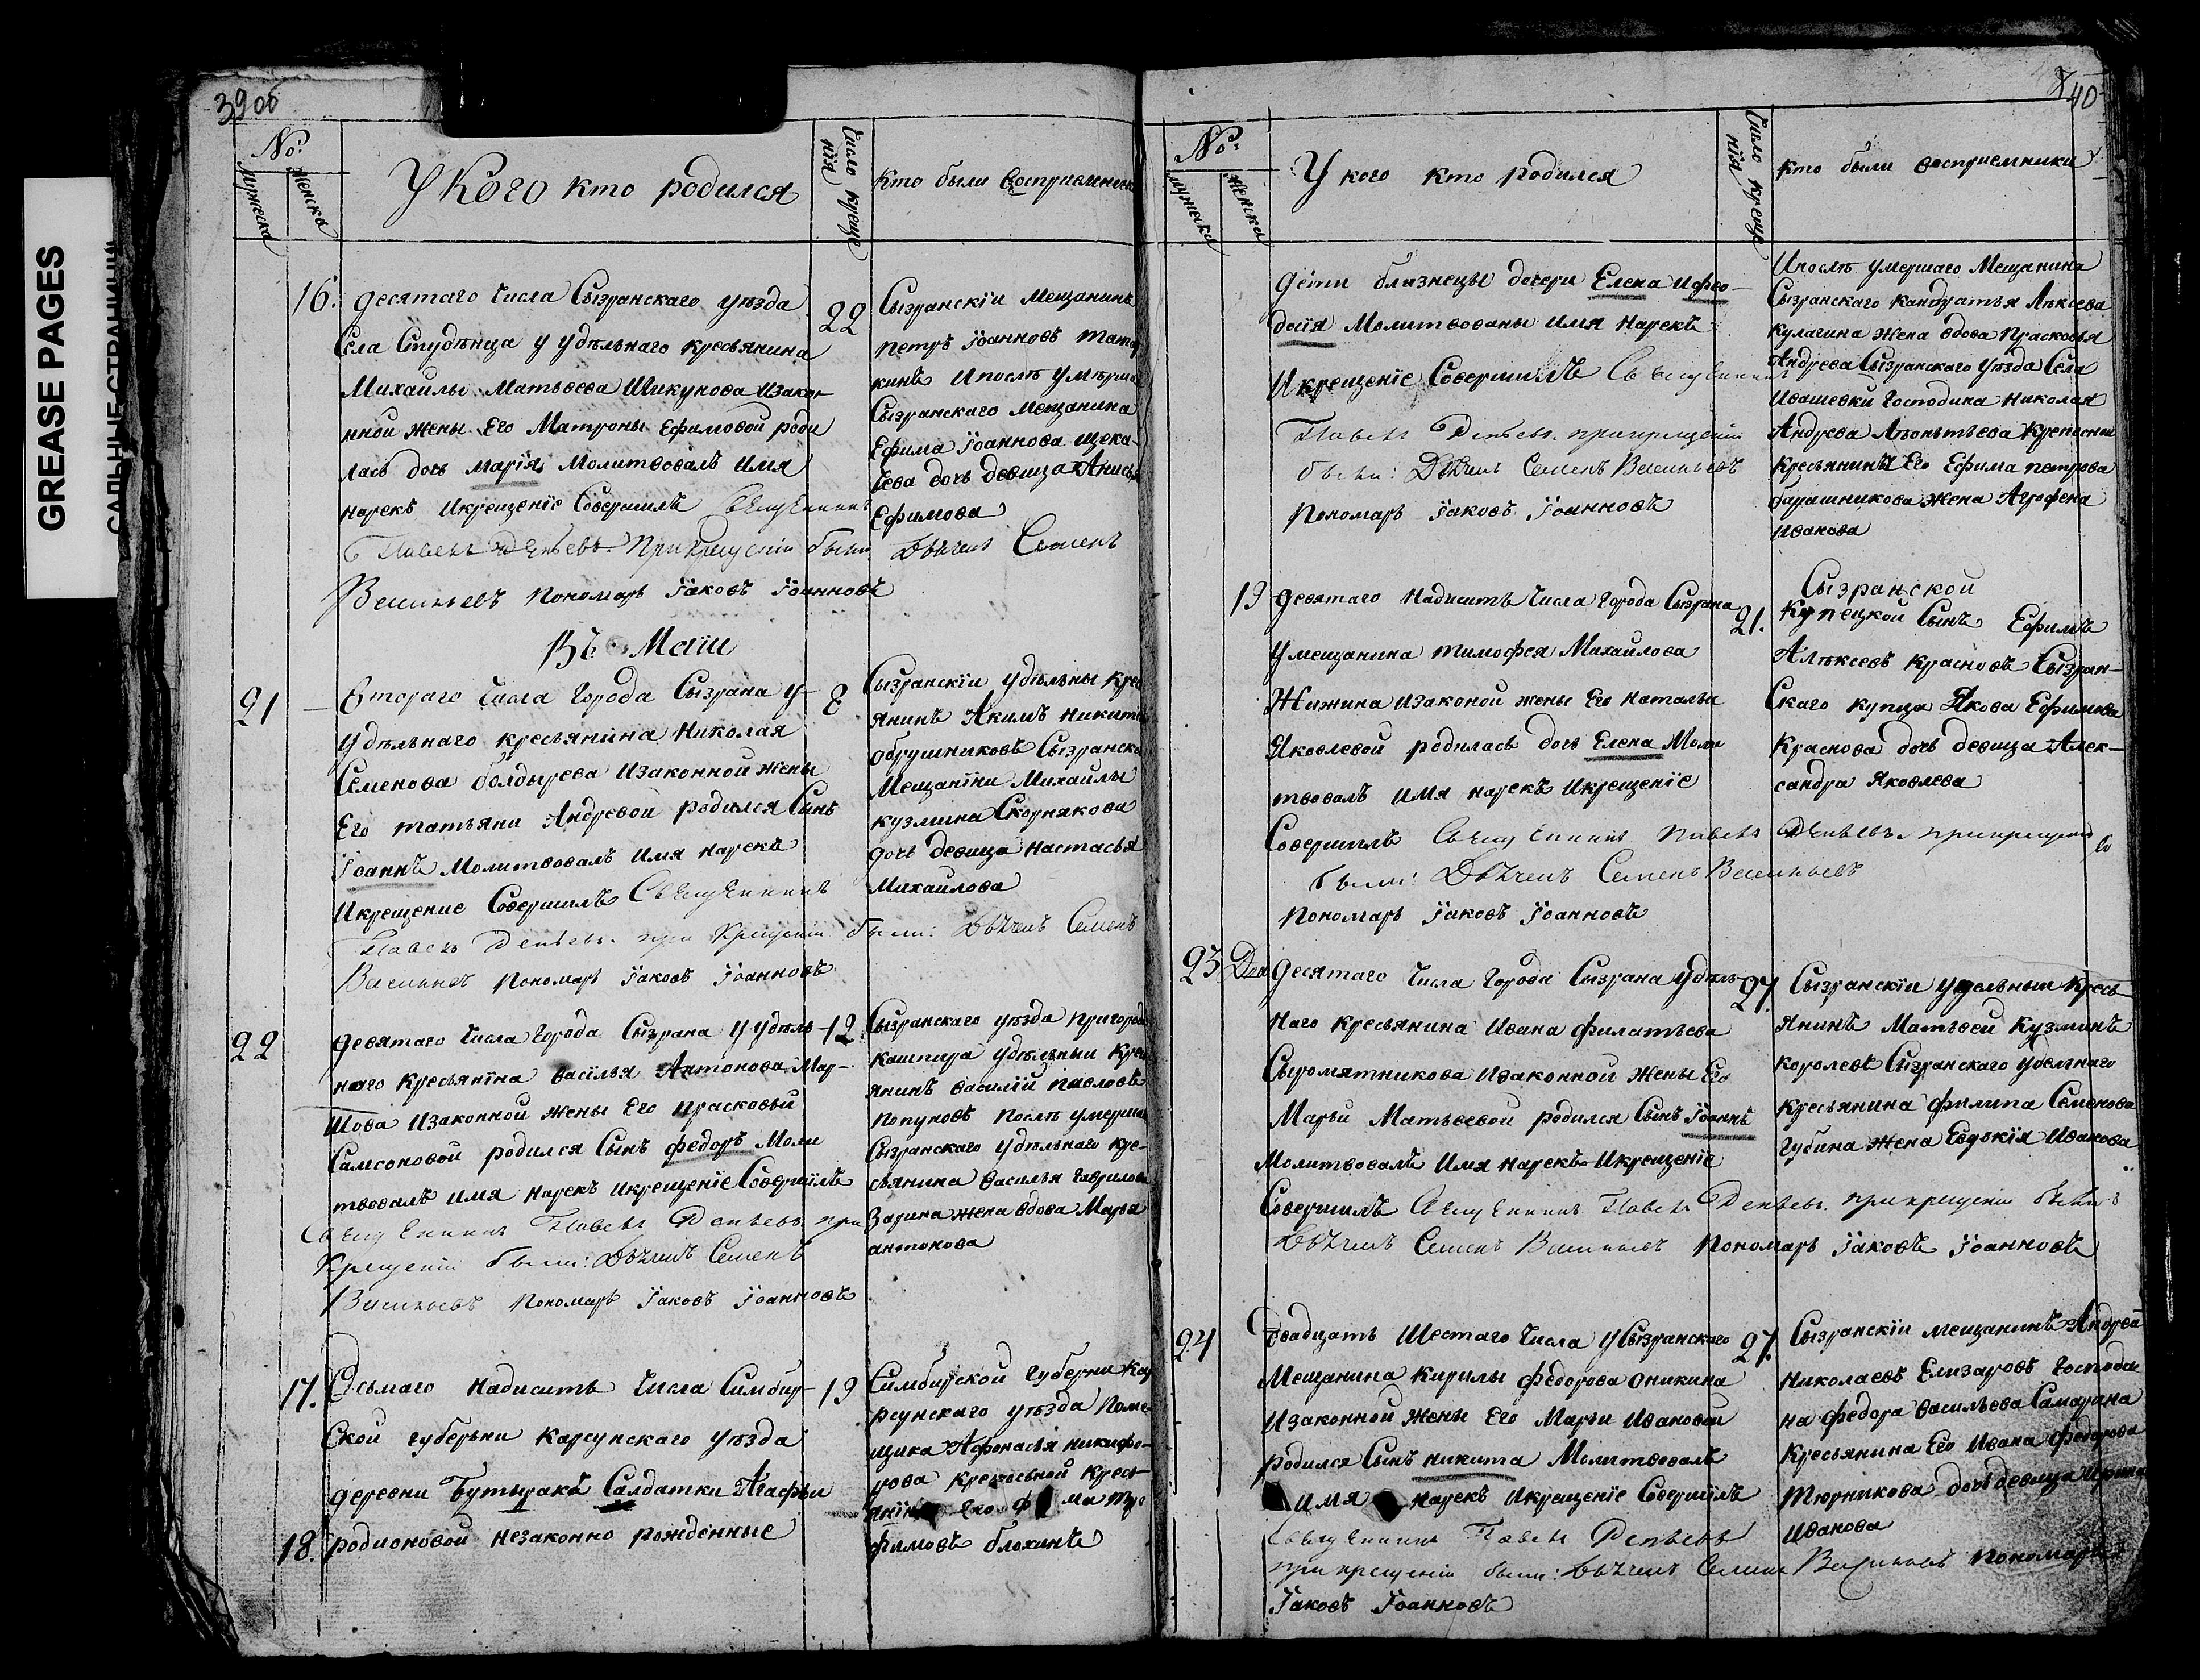 GREASE PAGES
САЛЬНЫЕ СТРАНИЦЫ
39 об
No.
мужеска
женска
У Кого кто родился
Число креще
нія
кто были Восприемники
16.
десятаго Числа Сызранскаго уѣзда
Села Студѣнца у удѣльнаго кресьянина
Михаилы Матьвеева Шикунова изакон
нной жены Его Матроны Ефимовой роди
лась дочь Марія Молитвовалъ Имя
нарекъ Икрещеніе Совершилъ Священникъ
Павелъ прикрещеніи были Дьячекъ Семенъ
Васильевъ Пономарь Іаковъ Іоанновъ
22
Сызранскіи Мещанинъ
петръ Іоанновъ
кинъ Ипослѣ умерша
Сызранскаго Мещанина
Ефима Іоаннова щека-
Ева дочь девица Анисья
Ефимова
Въ Маіи
21
Втораго Числа Города Сызрана у-
удѣльнаго кресьянина Николая
Семенова болдырева Изаконной жены
Его татьяни Андревой родился Сынъ
Іоаннъ Молитвовалъ Имя нарекъ
Икрещение Совершилъ Священникъ
Павелъ при Крещеніи были: Дьячекъ Семенъ
Васильевъ Пономарь Іаковъ Іоанновъ
8
Сызранскіи удѣльны кре
янинъ Акимъ никити
обрушниковъ Сызранско
Мещаніни Михаилы
кузмина Скорнякова
дочь девица Настасья
Михаилова
22
девятаго Числа Города Сызрана у удѣль-
наго кресьяніна васілья Антонова Мар-
шова Изаконной жены Его Прасковьи
Самсоновой родился Сынъ федоръ Моли
твовалъ имя нарекъ икрещеніе Совершилъ
Священникъ Павелъ при
Крещеніи были: Дьячекъ Семенъ
Васильевъ Пономарь Іаковъ Іоанновъ
12.
Сызранскаго уѣзда пригорода
кашпира удѣльныи кре
янинъ василіи павловъ
попуновъ послѣ умерша
Сызранскаго удѣльнаго кре-
сьянина василья гаврилова
Зарина жена вдова Марья
антонова
17.
Осьмаго надисить Числа Симбир-
Ской губерьни карсунскаго уѣзда
деревни Бутыракъ Салдатки Агафьи
18.
родионовой незаконно рожденные
19
Симбирской губерни кар
рсунскаго уѣзда поме
щика Афонасья никифо-
рова крепосьной крес
янін Его ма тро
фимовъ блохинъ
40
No.
мужеска
женска
У кого кто родился
Число креще
нія
кто были восприемники
дѣти близнецы дочери Елена ифео-
досія Молитвованы имя нарекъ
Икрещеніе Совершилъ Священникъ
Павелъ прикрещеніи
были: Дьячекъ Семенъ Васильевъ
Пономарь Іаковъ Іоанновъ
Ипослѣ умершаго Мещанина
Сызранскаго кандратья Алѣксева
кулагина жена вдова Прасковья
Андрева Сызранскаго уѣзда Села
Ивашевки господина николая
Андрева Леоньтьева крепосной
кресьянинъ Его Ефима петрова
барашникова жена Агрофена
иванова
19
девятаго надисить Числа города Сызрана
умещанина тимофея Михаилова
Жижина изаконой жены Его Натальи
Яковлевой родилась дочь Елена Моли
твовалъ имя нарекъ икрещеніе
Совершилъ Священникъ Павелъ прикрещеніи
были: Дьячекъ Семенъ Васильевъ
Пономарь Іаковъ Іоанновъ
21.
Сызранской
купецкой Сынъ Ефимъ
Алѣксеевъ красновъ Сызран-
Скаго купца Якова Ефимова
Краснова дочь девица Алек-
сандра Яковлева
23
Два
десятаго Числа города Сызрана удѣль
наго кресьянина ивана филатьева
Сыромятникова изаконной жены Его
Марьи Матьвевой родился Сынъ Іоаннъ
Молитвовалъ Имя нарекъ Икрещеніе
Совершилъ Священникъ Павелъ прикрещеніи были:
Дьячекъ Семенъ Васильевъ Пономарь Іаковъ Іоанновъ
27.
Сызранскіи удельныи кресь
янинъ Матьвей Кузминъ
королевъ Сызранскаго уделнаго
кресьянина филипа Семенова
Губина жена Евдокія иванова
24
Двадцать Шестаго Числа у Сызранскаго
Мещанина Кирилы федорова оникина
изаконной жены Его Марьи ивановой
родился Сынъ никита Молитвовалъ
имя нарекъ икрещеніе Совершилъ
Священникъ Павелъ
при крещеніи были: Дьячекъ Семенъ Васильевъ пономарь
Іаковъ Іоанновъ
27.
Сызранскіи мещанинъ Андреи
николаевъ Елизаровъ господи
на федора васильева Самарина
кресьянина Его ивана федорова
тюрникова дочь девица Ирина
иванова